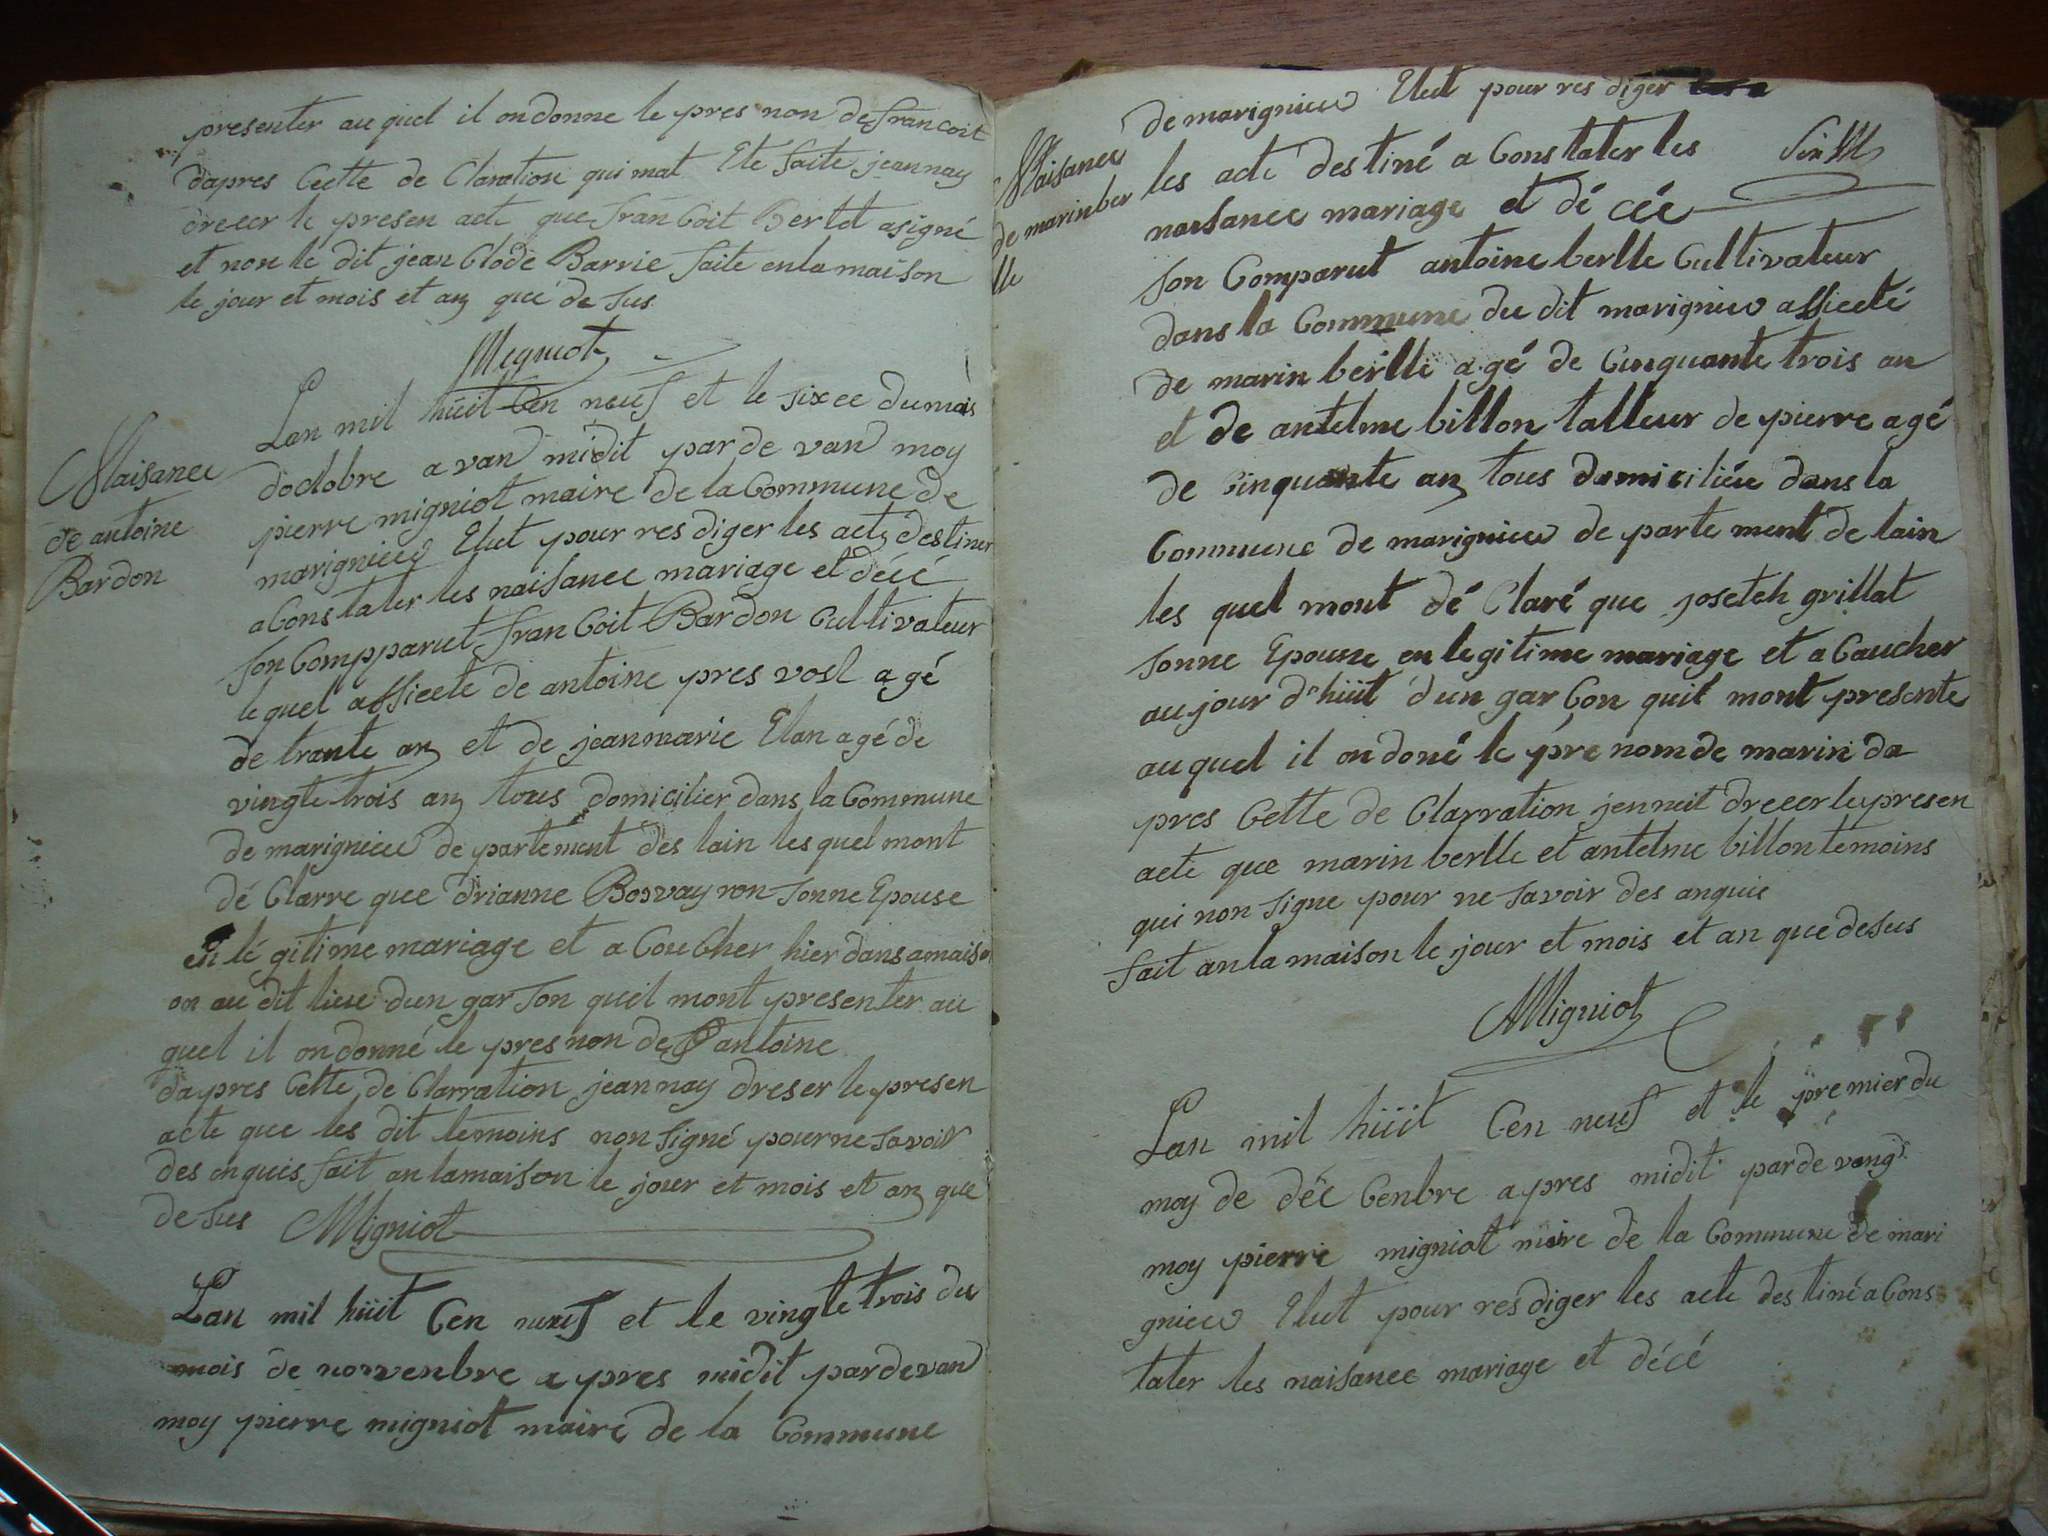 presenter au quel il on donne le pres non de francoit
dapres Cette de Claration qui mat Ete faite jeannay
dreecr le presen acte que fran Coit Bertet a signé
et non le dit jean Clode Barrie faite en la maison
le jour et mois et an que de sus
Migniot
Naisanee
de antoine
Bardon
Lan mil hüit Cen neuf et le sixee du mois
doctobre avan midit par de van moy
pierre migniot maire de la Commune de
marignieu Elut pour res diger les acte destiner
a Cons tater les naisanee mariage et décé
son Compparut fran Coit Bardon Cultivateur
le quel assiecte de antoine pres vosl agé
de trante an et de jean marie Elan agé de
vingte trois an tous domicilier dans la Commune
de marignieu de partement des lain les quel mont
dé Clarre que drianne Borvay ron sonne Epouse
en lé gitime mariage et a Cou Cher hier dans a maiso
on au dit lieu dun gar son quil mont presenter au
quel il on donné le pres non de antoine
da pres Cette de Clarration jean nay dreser le presen
acte que les dit temoins non signé pour ne savoir
des en quis fait an la maison le jour et mois et an que
de sus Migniot
Lan mil hüit Cen neuf et le vingte trois du
mois de novvenbre a pres midit par de van
moy pierre migniot maire de la Commune
de marignieu Elut pour res diger
Naisanee
de marin ber
lle
les acte destiné a Cons tater les
naisance mariage et dé cée
son Comparut antoine berlle Cultivateur
dans la Commune du dit marignieu assiecté
de marin berlle agé de Cinquante trois an
et de antelme billon talleur de pierre agé
de cinquante an tous domiciliée dans la
Commune de marignieu de parte ment de lain
les quel mont dé Claré que joseteh grillat
sonne Epouse en legitime mariage et a Caucher
au jour d'hüit dun gar Con quil mont presente
au quel il on doné le pre nom de marin da
pres Cette de Clarration jenneit dreeer le presen
acte que marin berlle et antelme billon temoins
qui non signe pour ne savoir des anquis
fait an la maison le jour et mois et an que de sus
Migniot
Lan mil hüit Cen neuf et le premier du
moy de déc Cenbre apres midit par de vang
moy pierre migniot maire de la Commune de mari
gnieu Elut pour res diger les acte destiné a Cons
tater les naisanee mariage et décé